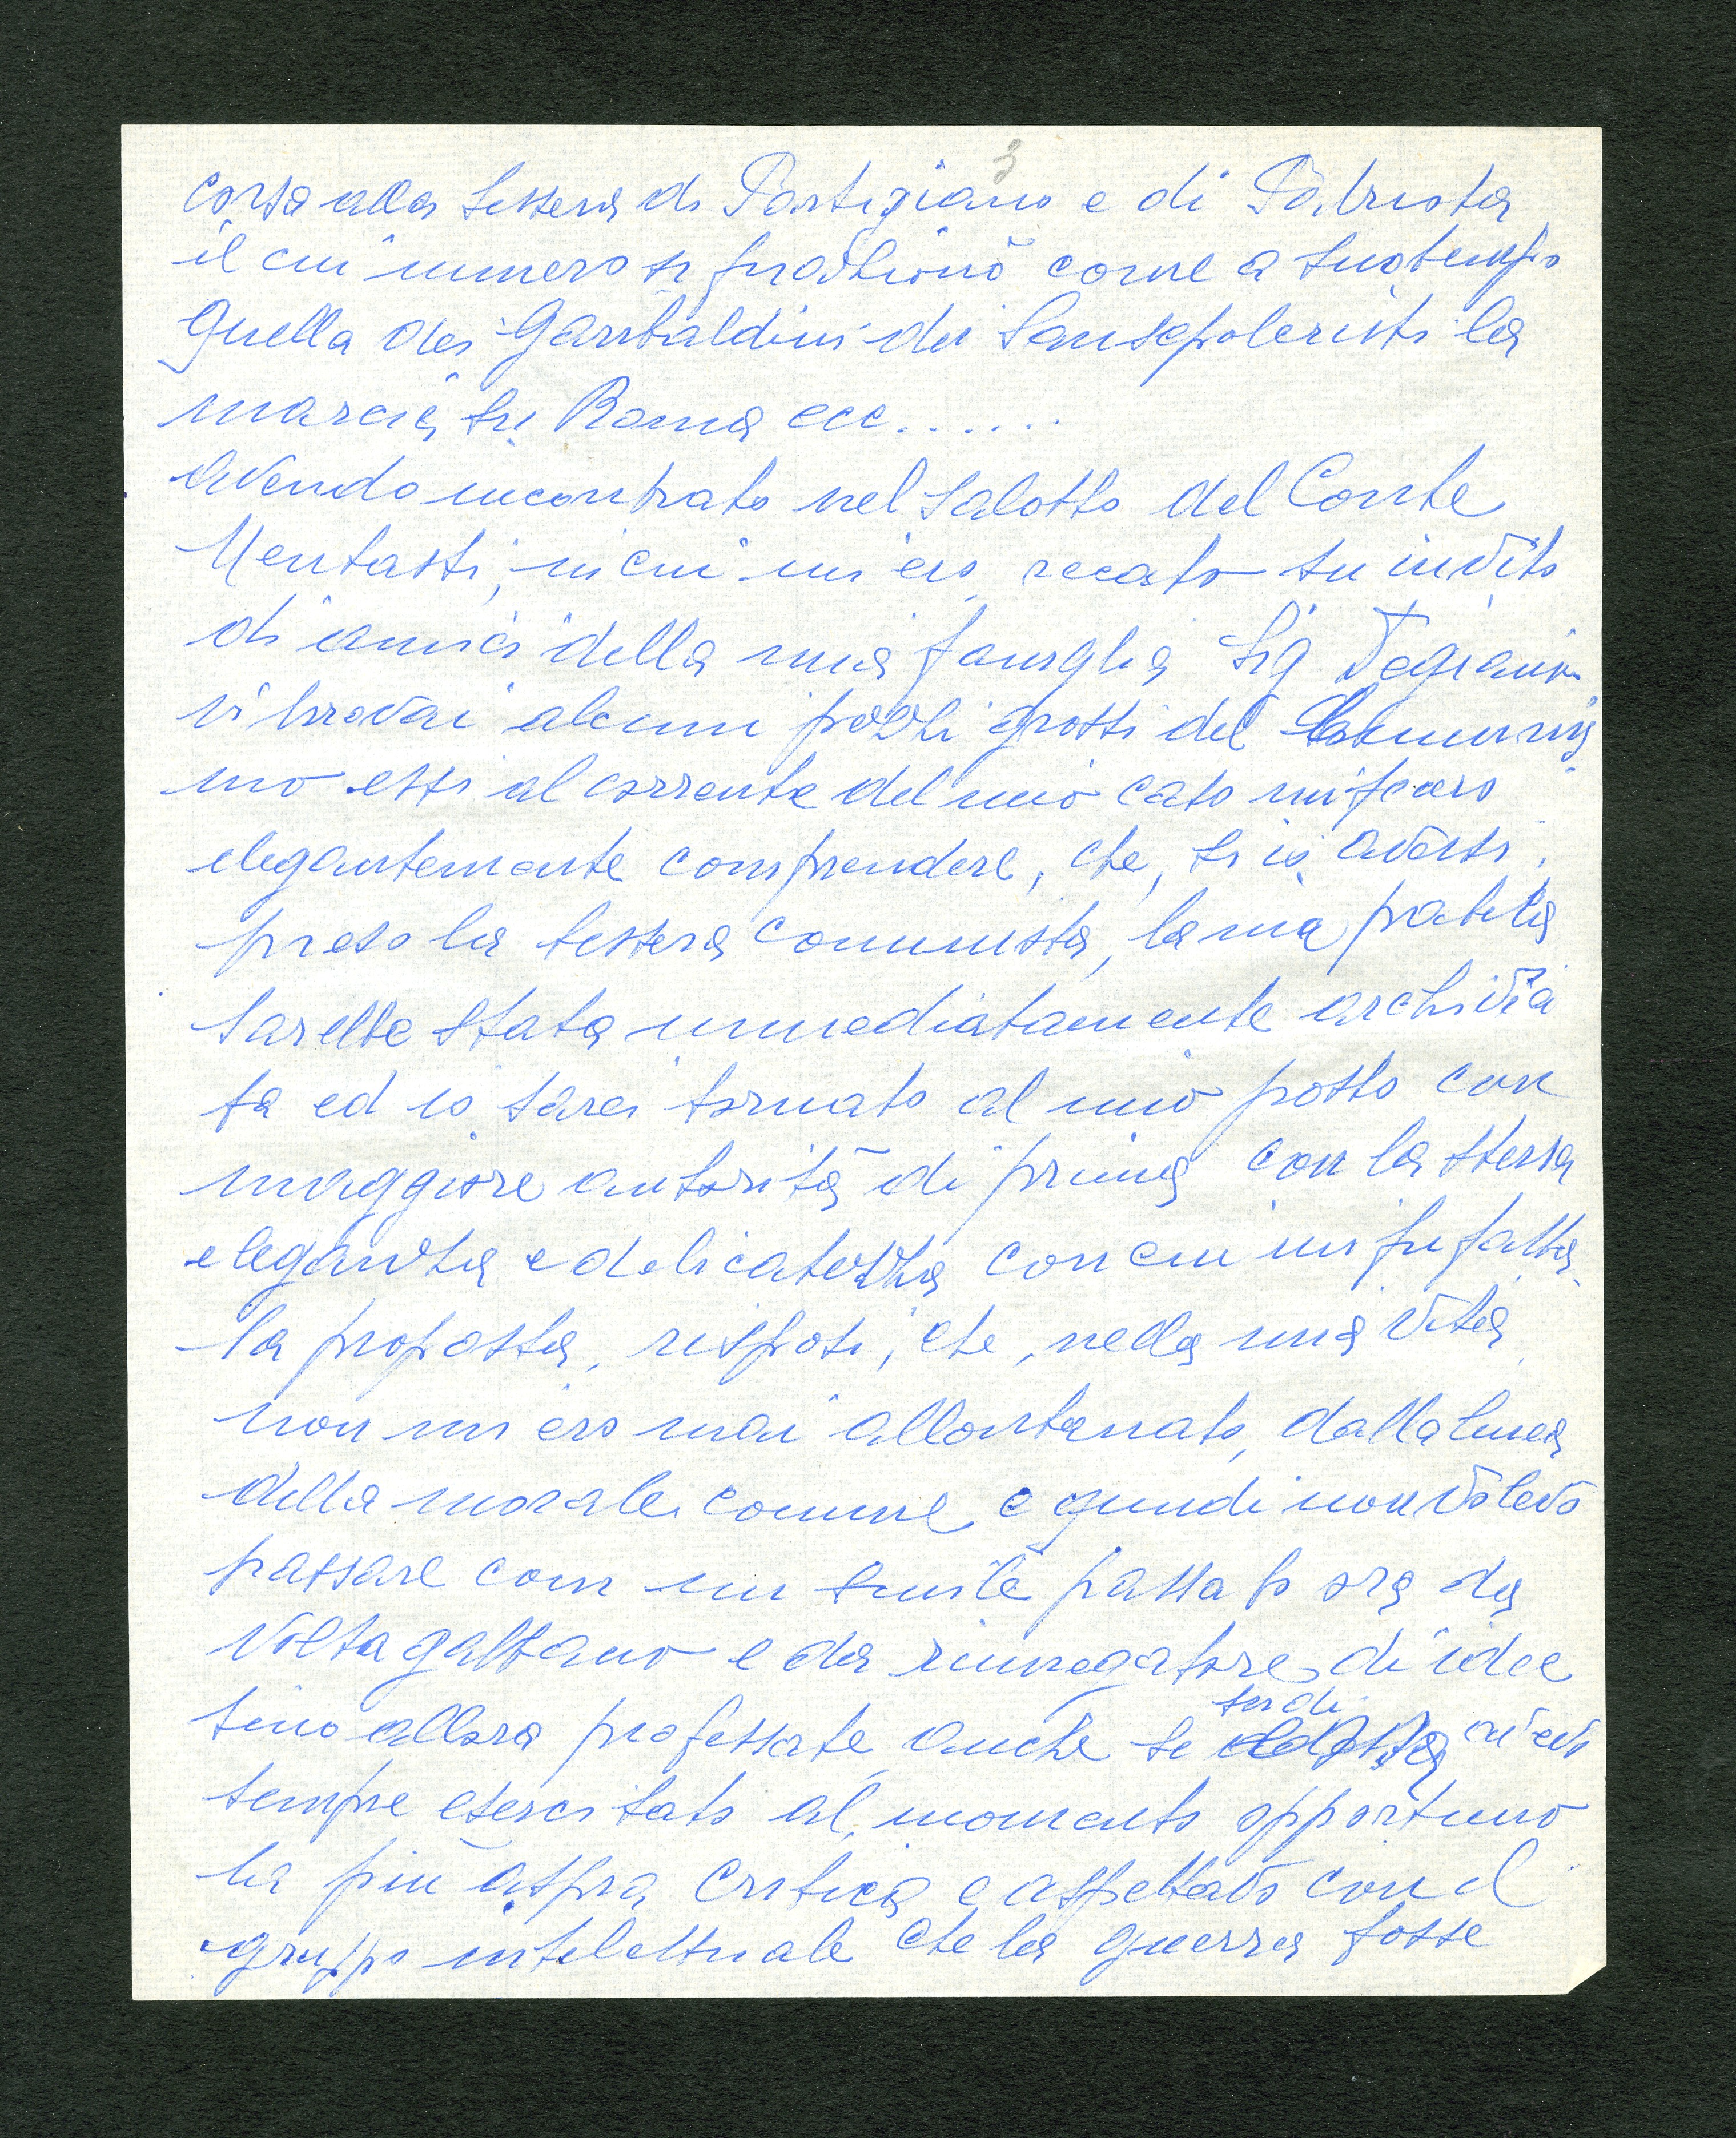 3
corsa alla tessera di Partigiano e di Patriota
il cui numero si frazionò come a suo tempo
quella dei Garibaldini dei Sansepolcristi la
marcia su Roma ecc......
avendo incontrato nel salotto del Conte
Mentasti, in cui mi ero recato su invito
di amici della mia famiglia Sig
vi trovai alcuni pezzi grossi del Comunis
mo essi al corrente del mio caso mi fecero
elegantemente comprendere, che, se io avessi
preso la tessera comunista, la mia pratica
sarebbe stata immediatamente archivia
ta ed io sarei tornato al mio posto con
maggiore autorità di prima con la stessa
eleganza e delicatezza con cui mi fu fatta
la proposta, risposi, che, nella mia vita
non mi ero mai allontanato dalla linea
della morale comune e quindi non volevo
passare con un simile passato ora da
voltagabbano e da rinnegatore di idee
sino allora professate, anche se su di avevo
sempre esercitato al momento opportuno
la più aspra critica e aspettavo con il
gruppo intelettuale che la guerra fosse